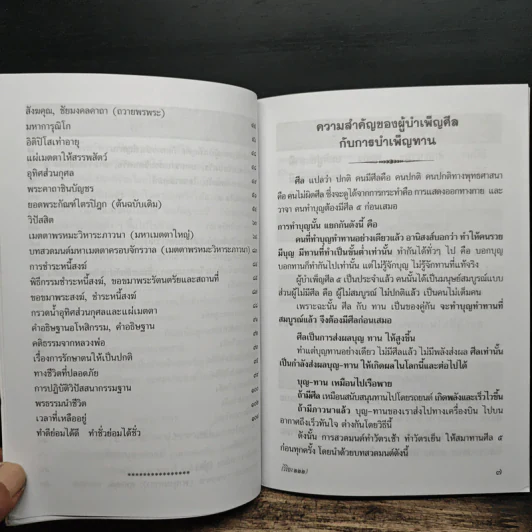 สังฆคุณ, ชัยมงคลคาถา (ถวายพรพระ)
มหาการุณิโก
อิติปิโสเท่าอายุ
แผ่เมตตาให้สรรพสัตว์
อุทิศส่วนกุศล
พระคาถาชินบัญชร
ยอดพระกัณฑ์ไตรปิฎก (ต้นฉบับเดิม)
วิปัสสิต
เมตตาพรหมะวิหาระภาวนา (มหาเมตตาใหญ่)
บทสวดมนต์มหาเมตตาครอบจักรวาล (เมตตาพรหมะวิหาระภาวนา)
การชำระหนี้สงฆ์
พิธีกรรมชำระหนี้สงฆ์, ขอขมาพระรัตนตรัยและสถานที่
ขอขมาพระสงฆ์, ชำระหนี้สงฆ์
กรวดน้ำอุทิศส่วนกุศลและแผ่เมตตา
คำอธิษฐานอโหสิกรรม, คำอธิษฐาน
คติธรรมจากหลวงพ่อ
เรื่องการรักษาตนให้เป็นปกติ
ทางชีวิตที่ปลอดภัย
การปฏิบัติวิปัสสนากรรมฐาน
พรธรรมนำชีวิต
เวลาที่เหลืออยู่
ทำดีย่อมได้ดี ทำชั่วย่อมได้ชั่ว
****************
ความสำคัญของผู้บำเพ็ญศีล
กับการบำเพ็ญทาน
ศีล แปลว่า ปกติ คนมีศีลคือ คนปกติ คนปกติทางพุทธศาสนา
คือ คนไม่ผิดศีล ซึ่งจะดูได้จากการกระทำคือ การแสดงออกทางกาย และ
วาจา คนทำบุญต้องมีศีล ๕ ก่อนเสมอ
การทำบุญนั้น แยกกันดังนี้ คือ
คนที่ทำบุญทำทานอย่างเดียวแล้ว อานิสงส์บอกว่า ทำให้คนรวย
มีบุญ มีทานที่ทำเป็นขั้นต่ำเท่านั้น ทำกันได้ทั่วๆ ไป คือ บอกบุญ
บอกทานก็ทำกันไปเท่านั้น แต่ไม่รู้จักบุญ ไม่รู้จักทานที่แท้จริง
ผู้บำเพ็ญศีล ๕ เป็นประจำแล้ว คนนั้นได้เป็นมนุษย์สมบูรณ์แบบ
ส่วนผู้ไม่มีศีล คือ ผู้ไม่สมบูรณ์ ไม่ปกติแล้ว เป็นคนไม่เต็มคน
เพราะฉะนั้น ศีล กับ ทาน เป็นของคู่กัน จะทำบุญทำทานที่
สมบูรณ์แล้ว จึงต้องมีศีลก่อนเสมอ
ศีลเป็นการส่งผลบุญ ทาน ให้สูงขึ้น
ทำแต่บุญทานอย่างเดียว ไม่มีศีลแล้ว ไม่มีพลังส่งผล ศีลเท่านั้น
เป็นกำลังส่งผลบุญ-ทาน ให้เกิดผลในโลกนี้และต่อไปได้
บุญ-ทาน เหมือนไปเรือพาย
ถ้ามีศีล เหมือนสนับสนุนทานไปโดยรถยนต์ เกิดพลังและเร็วไวขึ้น
ถ้ามีภาวนาแล้ว บุญ-ทานของเราส่งไปทางเครื่องบิน ไปบน
อากาศถึงเร็วทันใจ ต่างกันโดยวิธีนี้
ดังนั้น การสวดมนต์ทำวัตรเช้า ทำวัตรเย็น ให้สมาทานศีล ๕
ก่อนทุกครั้ง โดยนำด้วยบทสวดมนต์ดังนี้
๗